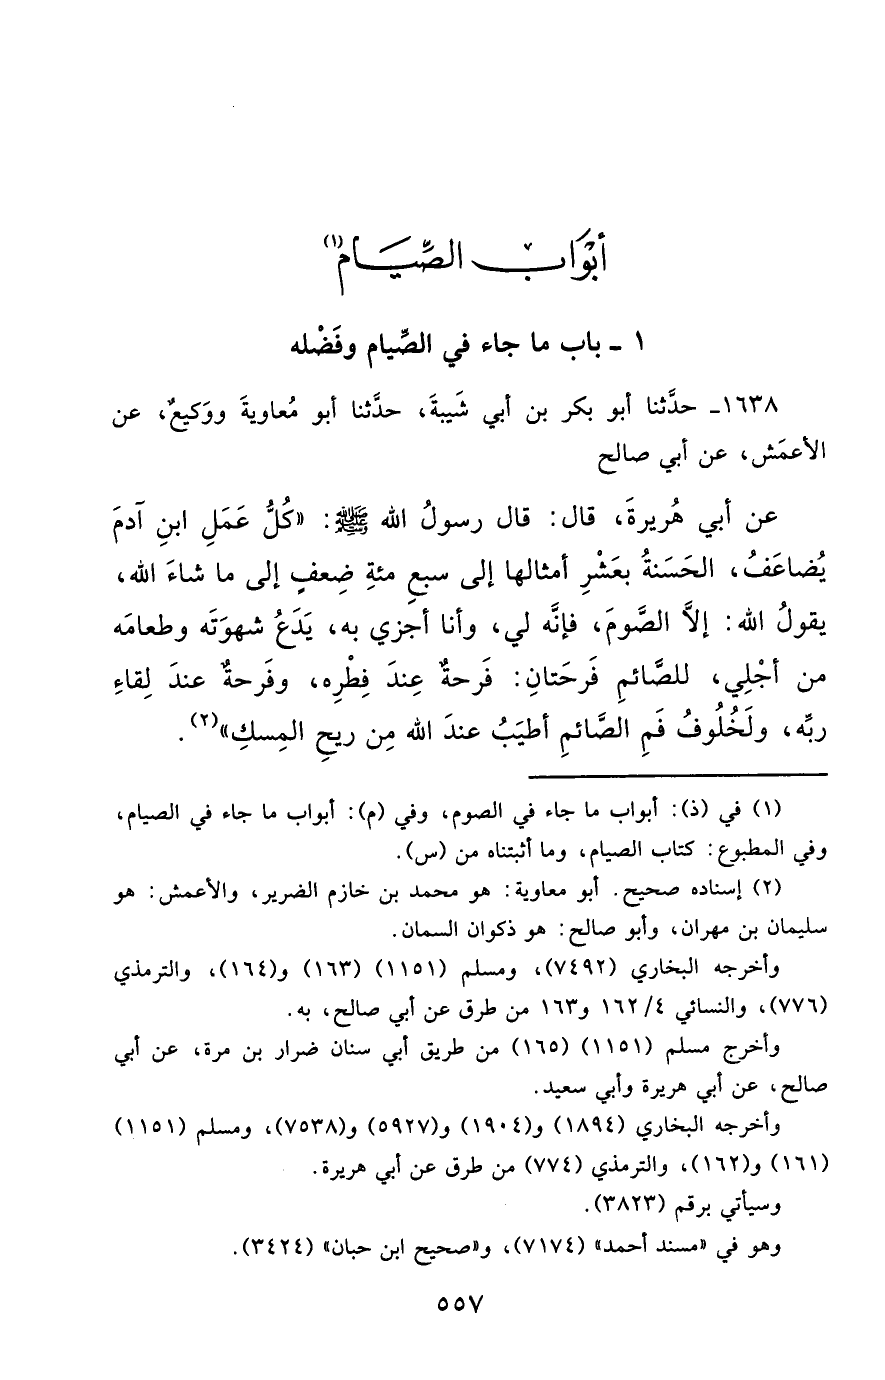 أبْوَاب الصِّيَام(١)
١ ـ باب ما جاء في الصِّيام وفَضْله
١٦٣٨ـ حدَّثنا أبو بكر بن أبي شَيبةَ، حدَّثنا أبو مُعاويةَ ووَكيعٌ، عن
الأعمَش، عن أبي صالح
عن أبي هُريرةَ، قال: قال رسولُ الله ﷺ: «كُلُّ عَمَلِ ابنِ آدمَ
يُضاعَفُ، الحَسَنةُ بعَشْرِ أمثالها إلى سبعِ مئةِ ضِعفٍ إلى ما شاءَ الله،
يقولُ الله: إلاَّ الصَّومَ، فإنَّه لي، وأنا أجزي به، يَدَعُ شهوَتَه وطعامَه
من أجْلِي، للصَّائمِ فَرحَتانِ: فَرحةٌ عِندَ فِطْرِه، وفَرحةٌ عندَ لِقاءِ
ربِّه، ولَخُلُوفُ فَمِ الصَّائمِ أطيَبُ عندَ الله مِن ريحِ المِسكِ»(٢).
(١) في (ذ): أبواب ما جاء في الصوم، وفي (م): أبواب ما جاء في الصيام،
وفي المطبوع: كتاب الصيام، وما أثبتناه من (س).
(٢) إسناده صحيح. أبو معاوية: هو محمد بن خازم الضرير، والأعمش: هو
سليمان بن مهران، وأبو صالح: هو ذكوان السمان.
وأخرجه البخاري (٧٤٩٢)، ومسلم (١١٥١) (١٦٣) و(١٦٤)، والترمذي
(٧٧٦)، والنسائي ٤/ ١٦٢ و١٦٣ من طرق عن أبي صالح، به.
وأخرج مسلم (١١٥١) (١٦٥) من طريق أبي سنان ضرار بن مرة، عن أبي
صالح، عن أبي هريرة وأبي سعيد.
وأخرجه البخاري (١٨٩٤) و(١٩٠٤) و(٥٩٢٧) و(٧٥٣٨)، ومسلم (١١٥١)
(١٦١) و(١٦٢)، والترمذي (٧٧٤) من طرق عن أبي هريرة.
وسيأتي برقم (٣٨٢٣).
وهو في «مسند أحمد» (٧١٧٤)، و«صحيح ابن حبان» (٣٤٢٤).
٥٥٧